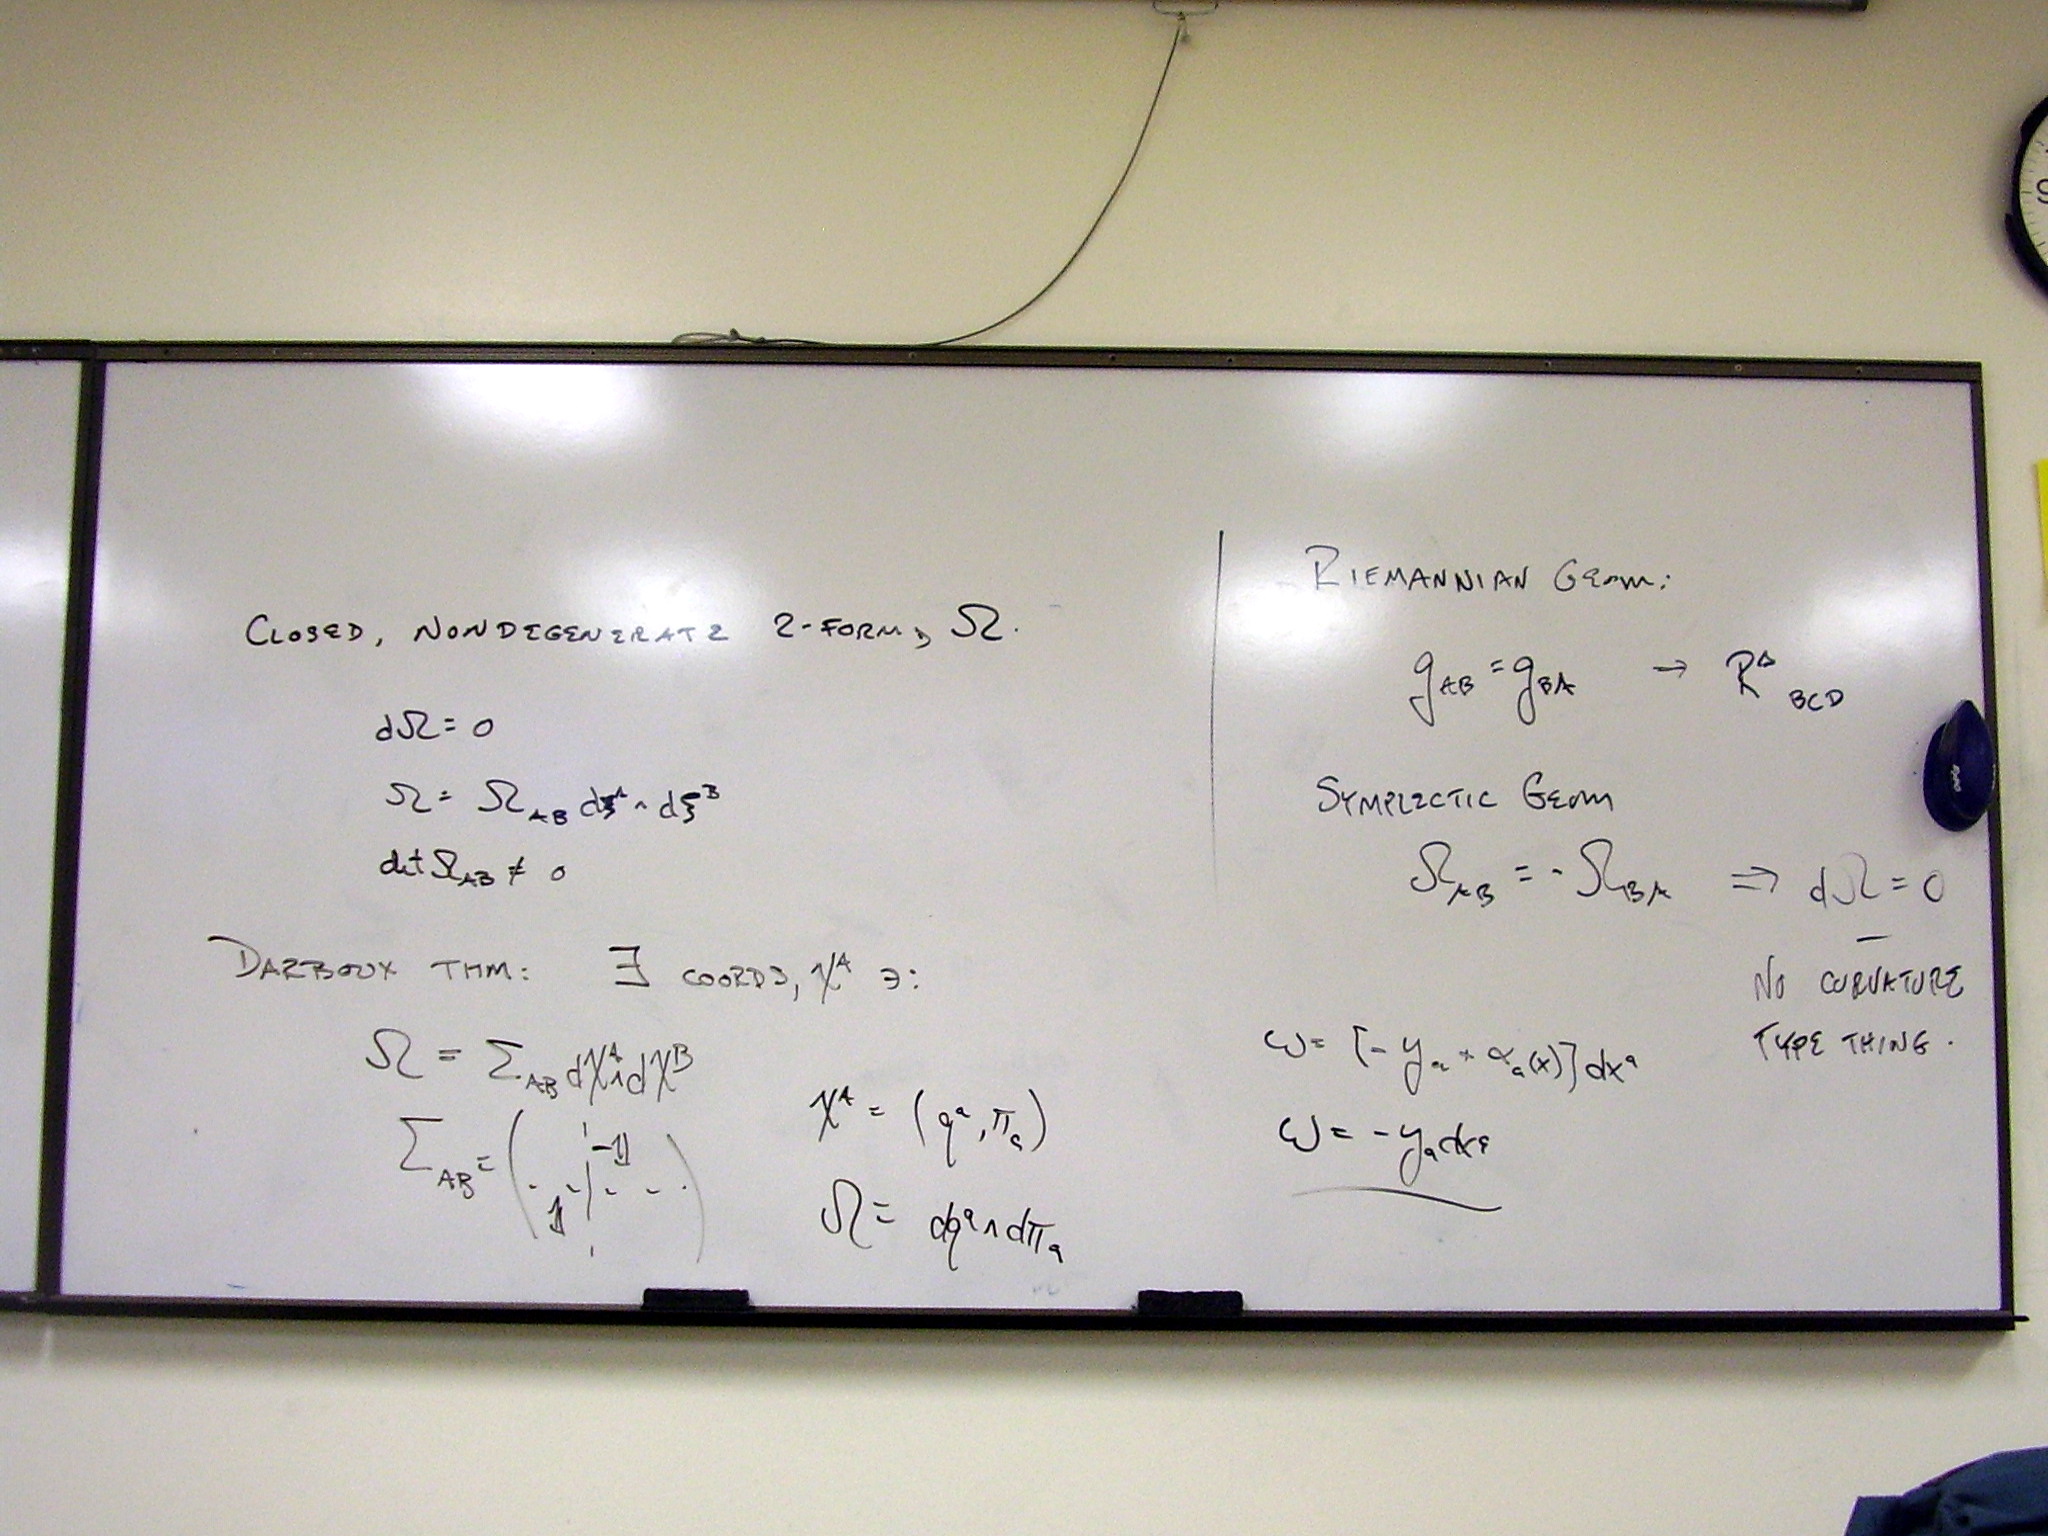 CLOSED, NONDEGENERATE 2-FORM, Ω.
dΩ = 0
Ω = Ω_AB dξ^A ∧ dξ^B
det Ω_AB ≠ 0
DARBOUX THM: ∃ COORDS, χ^A ∋:
Ω = Σ_AB dχ^A ∧ dχ^B
Σ_AB = ( -1 1 )
χ^A = (q^a, π_a)
Ω = dq^a ∧ dπ_a
RIEMANNIAN GEOM:
g_AB = g_BA → R^A_BCD
SYMPLECTIC GEOM
Ω_AB = -Ω_BA ⇒ dΩ = 0
NO CURVATURE
TYPE THING.
ω = [-y_a + α_a(x)] dx^a
ω = -y_a dx^a
9